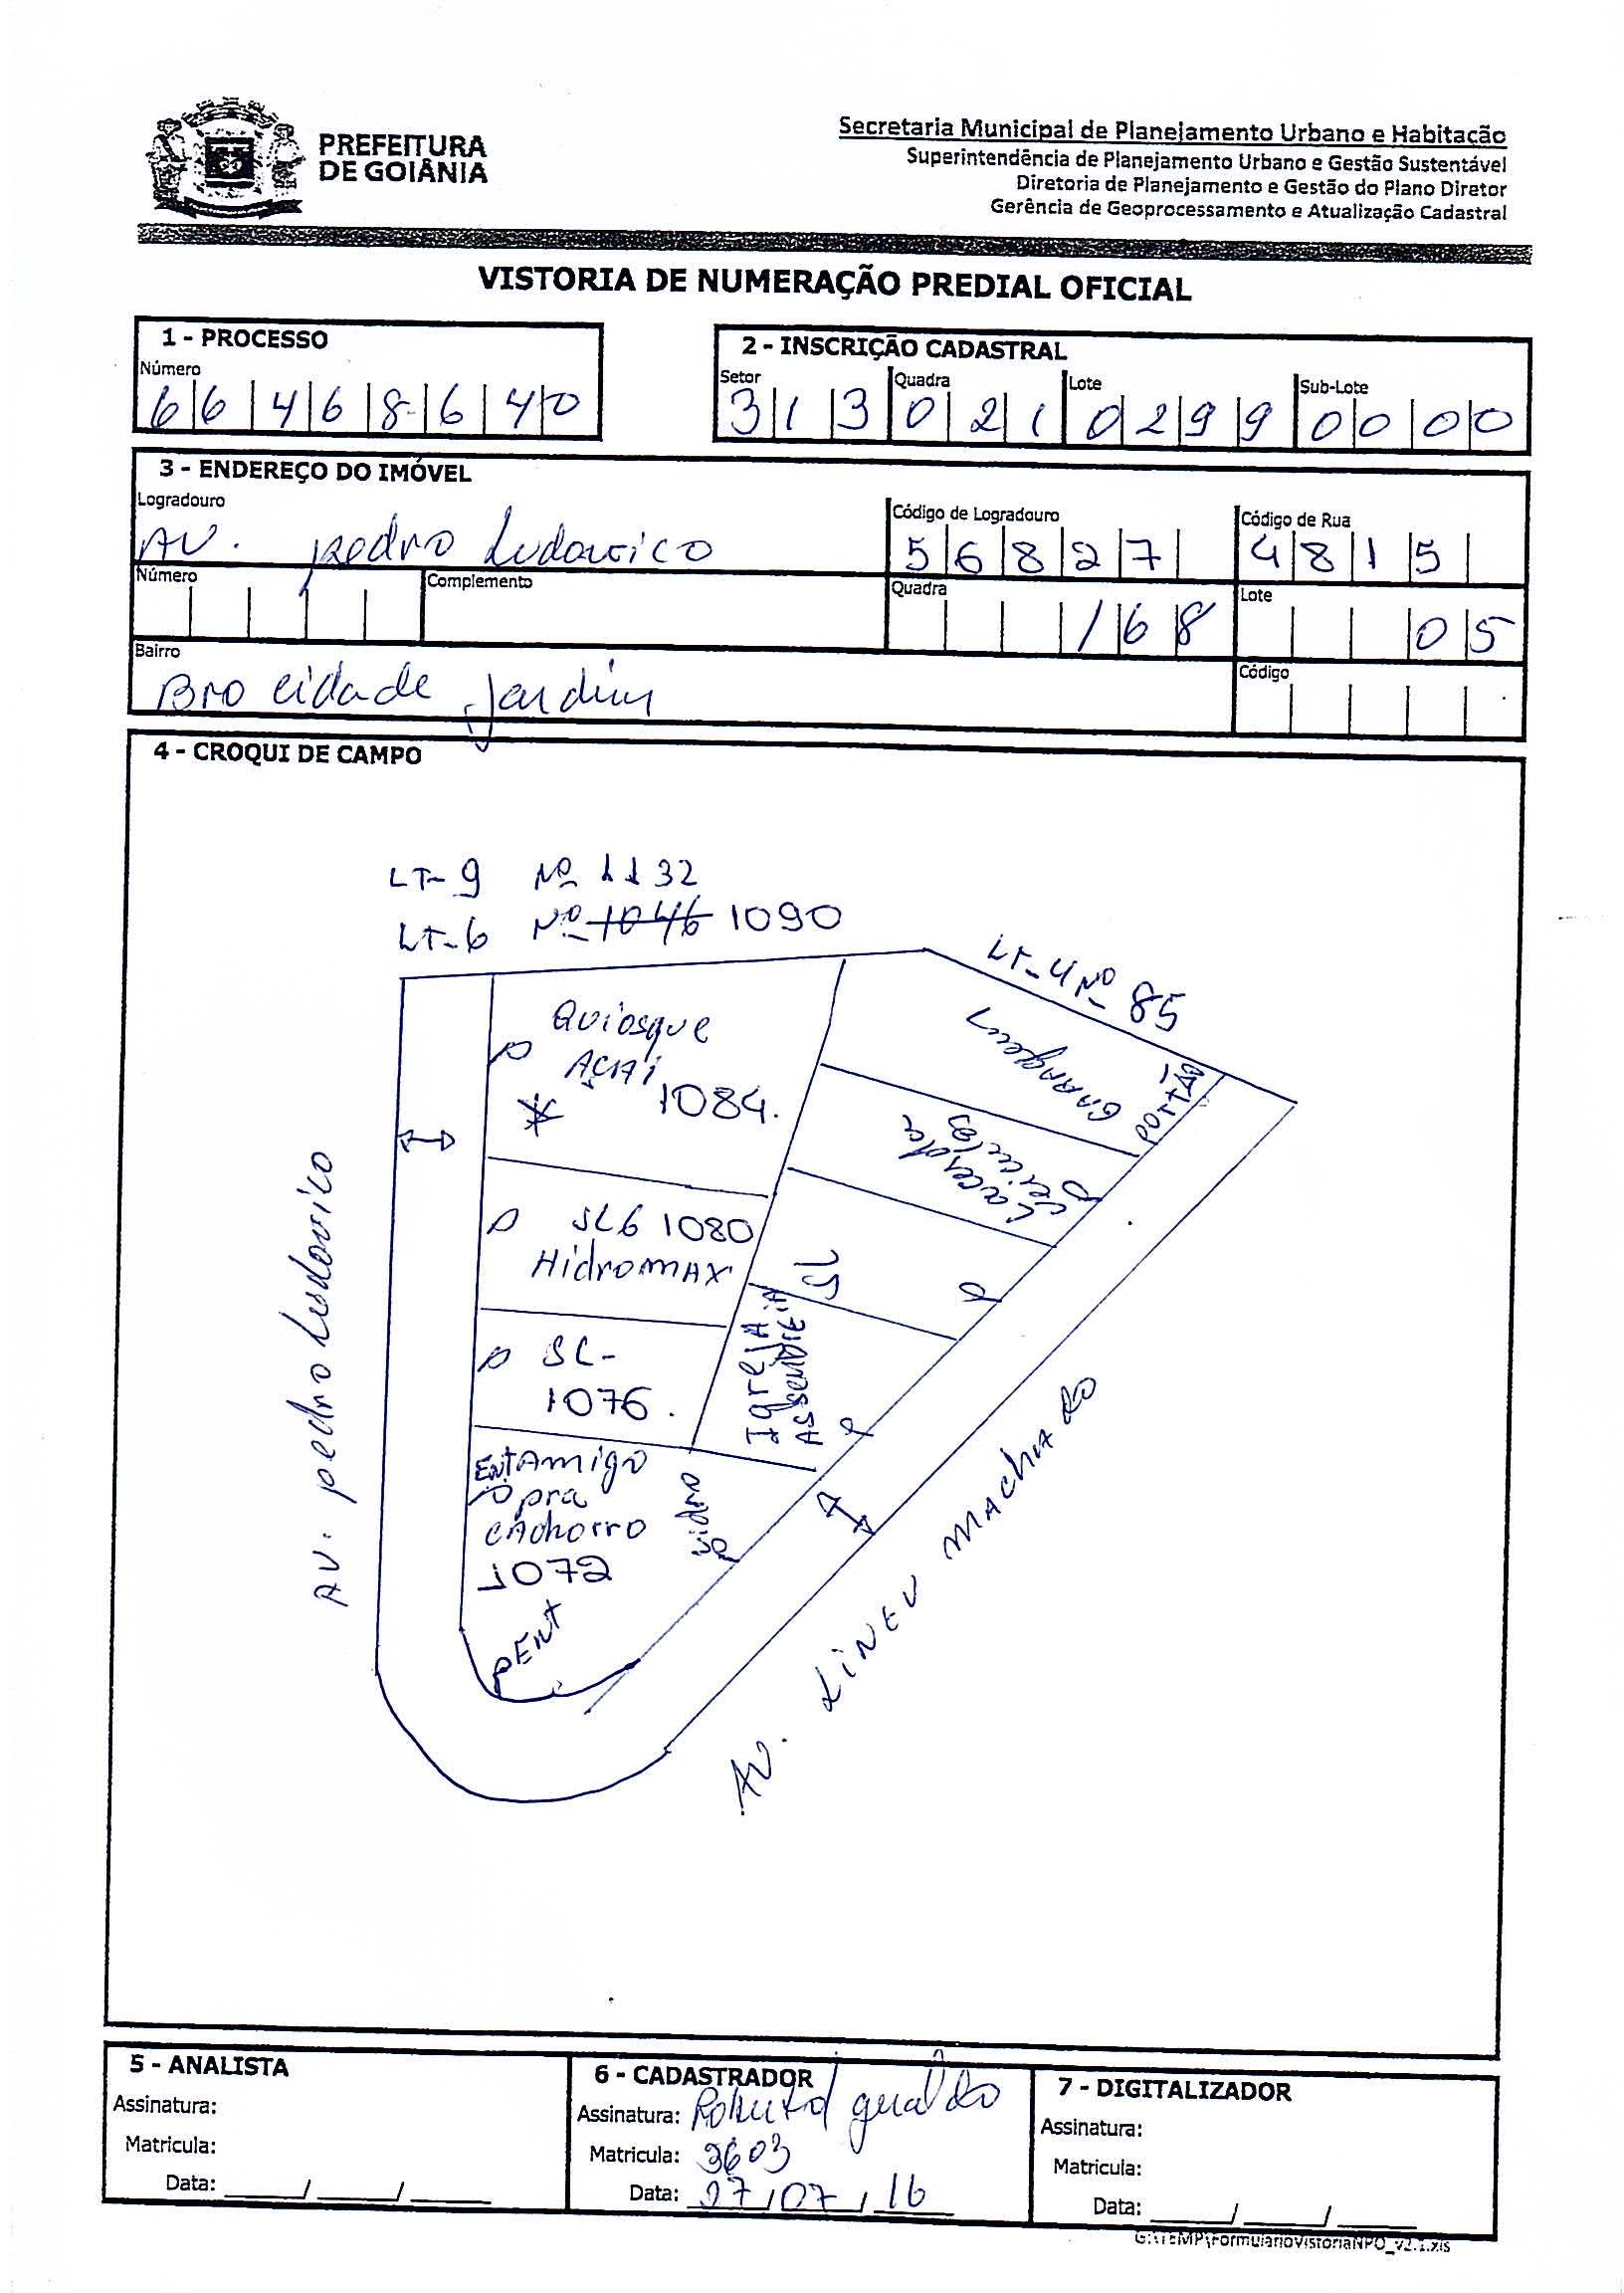 PREFEITURA
DE GOIÂNIA
Secretaria Municipal de Planejamento Urbano e Habitação
Superintendência de Planejamento Urbano e Gestão Sustentável
Diretoria de Planejamento e Gestão do Plano Diretor
Gerência de Geoprocessamento e Atualização Cadastral
VISTORIA DE NUMERAÇÃO PREDIAL OFICIAL
1 - PROCESSO
Número
66468640
2 - INSCRIÇÃO CADASTRAL
Setor Quadra Lote Sub-Lote
313 021 0299 0000
3 - ENDEREÇO DO IMÓVEL
Logradouro Código de Logradouro Código de Rua
AV. pedro Ludovico 56827 4815
Número Complemento Quadra Lote
168 05
Bairro Código
Bro cidade jardim
4 - CROQUI DE CAMPO
LT-9 Nº 1132
LT-6 Nº 1046 1090
LT-4 Nº 85
Quiosque
AÇAI
1084.
GARAGEM
PORTÃO
Lacerda
Veiculos
SL6 1080
HidromAX
SL
SL-
1076.
IgrejA
Assembleia
ENT Amigo
pra
cAchorro
1072
vidro
ENT
AV. pedro Ludovico
AV. LiNEU MAchAdo
5 - ANALISTA
Assinatura:
Matricula:
Data: ____/____/____
6 - CADASTRADOR
Assinatura: Roberto geraldo
Matricula: 3603
Data: 27/07/16
7 - DIGITALIZADOR
Assinatura:
Matricula:
Data: ____/____/____
G:\TEMP\FormularioVistoriaNPO_v2.1.xls